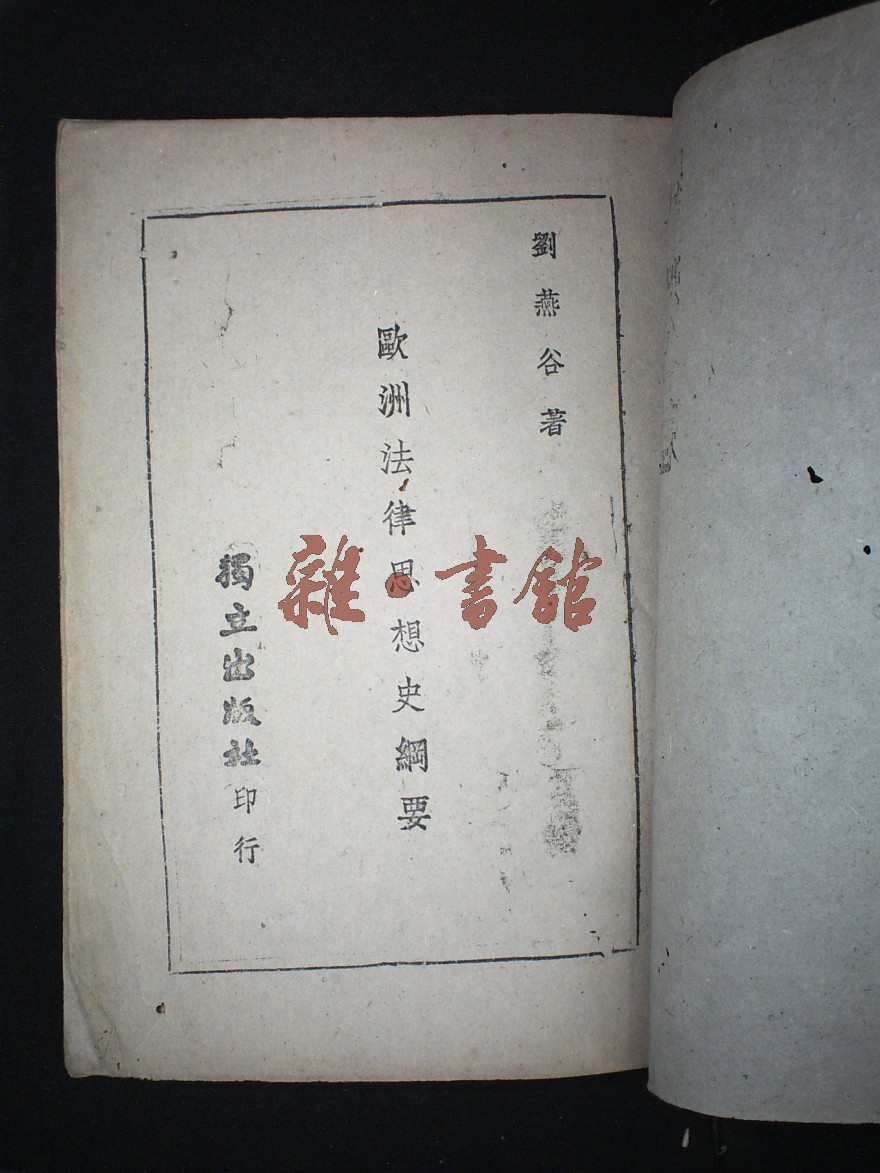 劉燕谷著
歐洲法律思想史綱要
獨立出版社印行
雜·書館